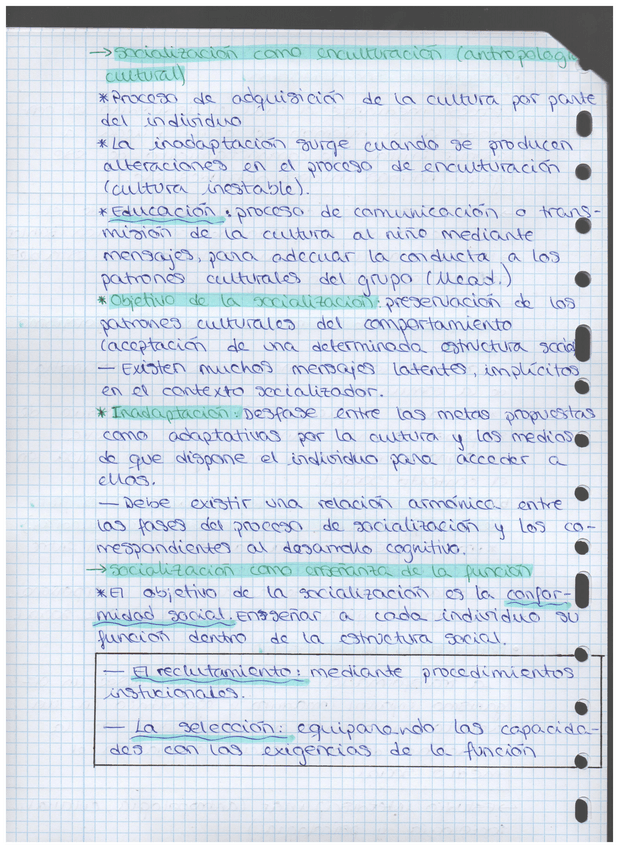 → Socialización como enculturación (antropología
cultural)
* Proceso de adquisición de la cultura por parte
del individuo
* La inadaptación surge cuando se producen
alteraciones en el proceso de enculturación
(cultura inestable).
* Educación: proceso de comunicación o trans-
misión de la cultura al niño mediante
mensajes, para adecuar la conducta a los
patrones culturales del grupo (Mead.)
* Objetivo de la socialización: preservación de los
patrones culturales del comportamiento
(aceptación de una determinada estructura social
— Existen muchos mensajes latentes, implícitos
en el contexto socializador.
* Inadaptación: Desfase entre las metas propuestas
como adaptativas por la cultura y los medios
de que dispone el individuo para acceder a
ellas.
— Debe existir una relación armónica entre
las fases del proceso de socialización y los co-
rrespondientes al desarrollo cognitivo.
→ Socialización como enseñanza de la función
* El objetivo de la socialización es la confor-
midad social. Enseñar a cada individuo su
función dentro de la estructura social.
— El reclutamiento: mediante procedimientos
instucionales.
— La selección: equiparando las capacida-
des con las exigencias de la función